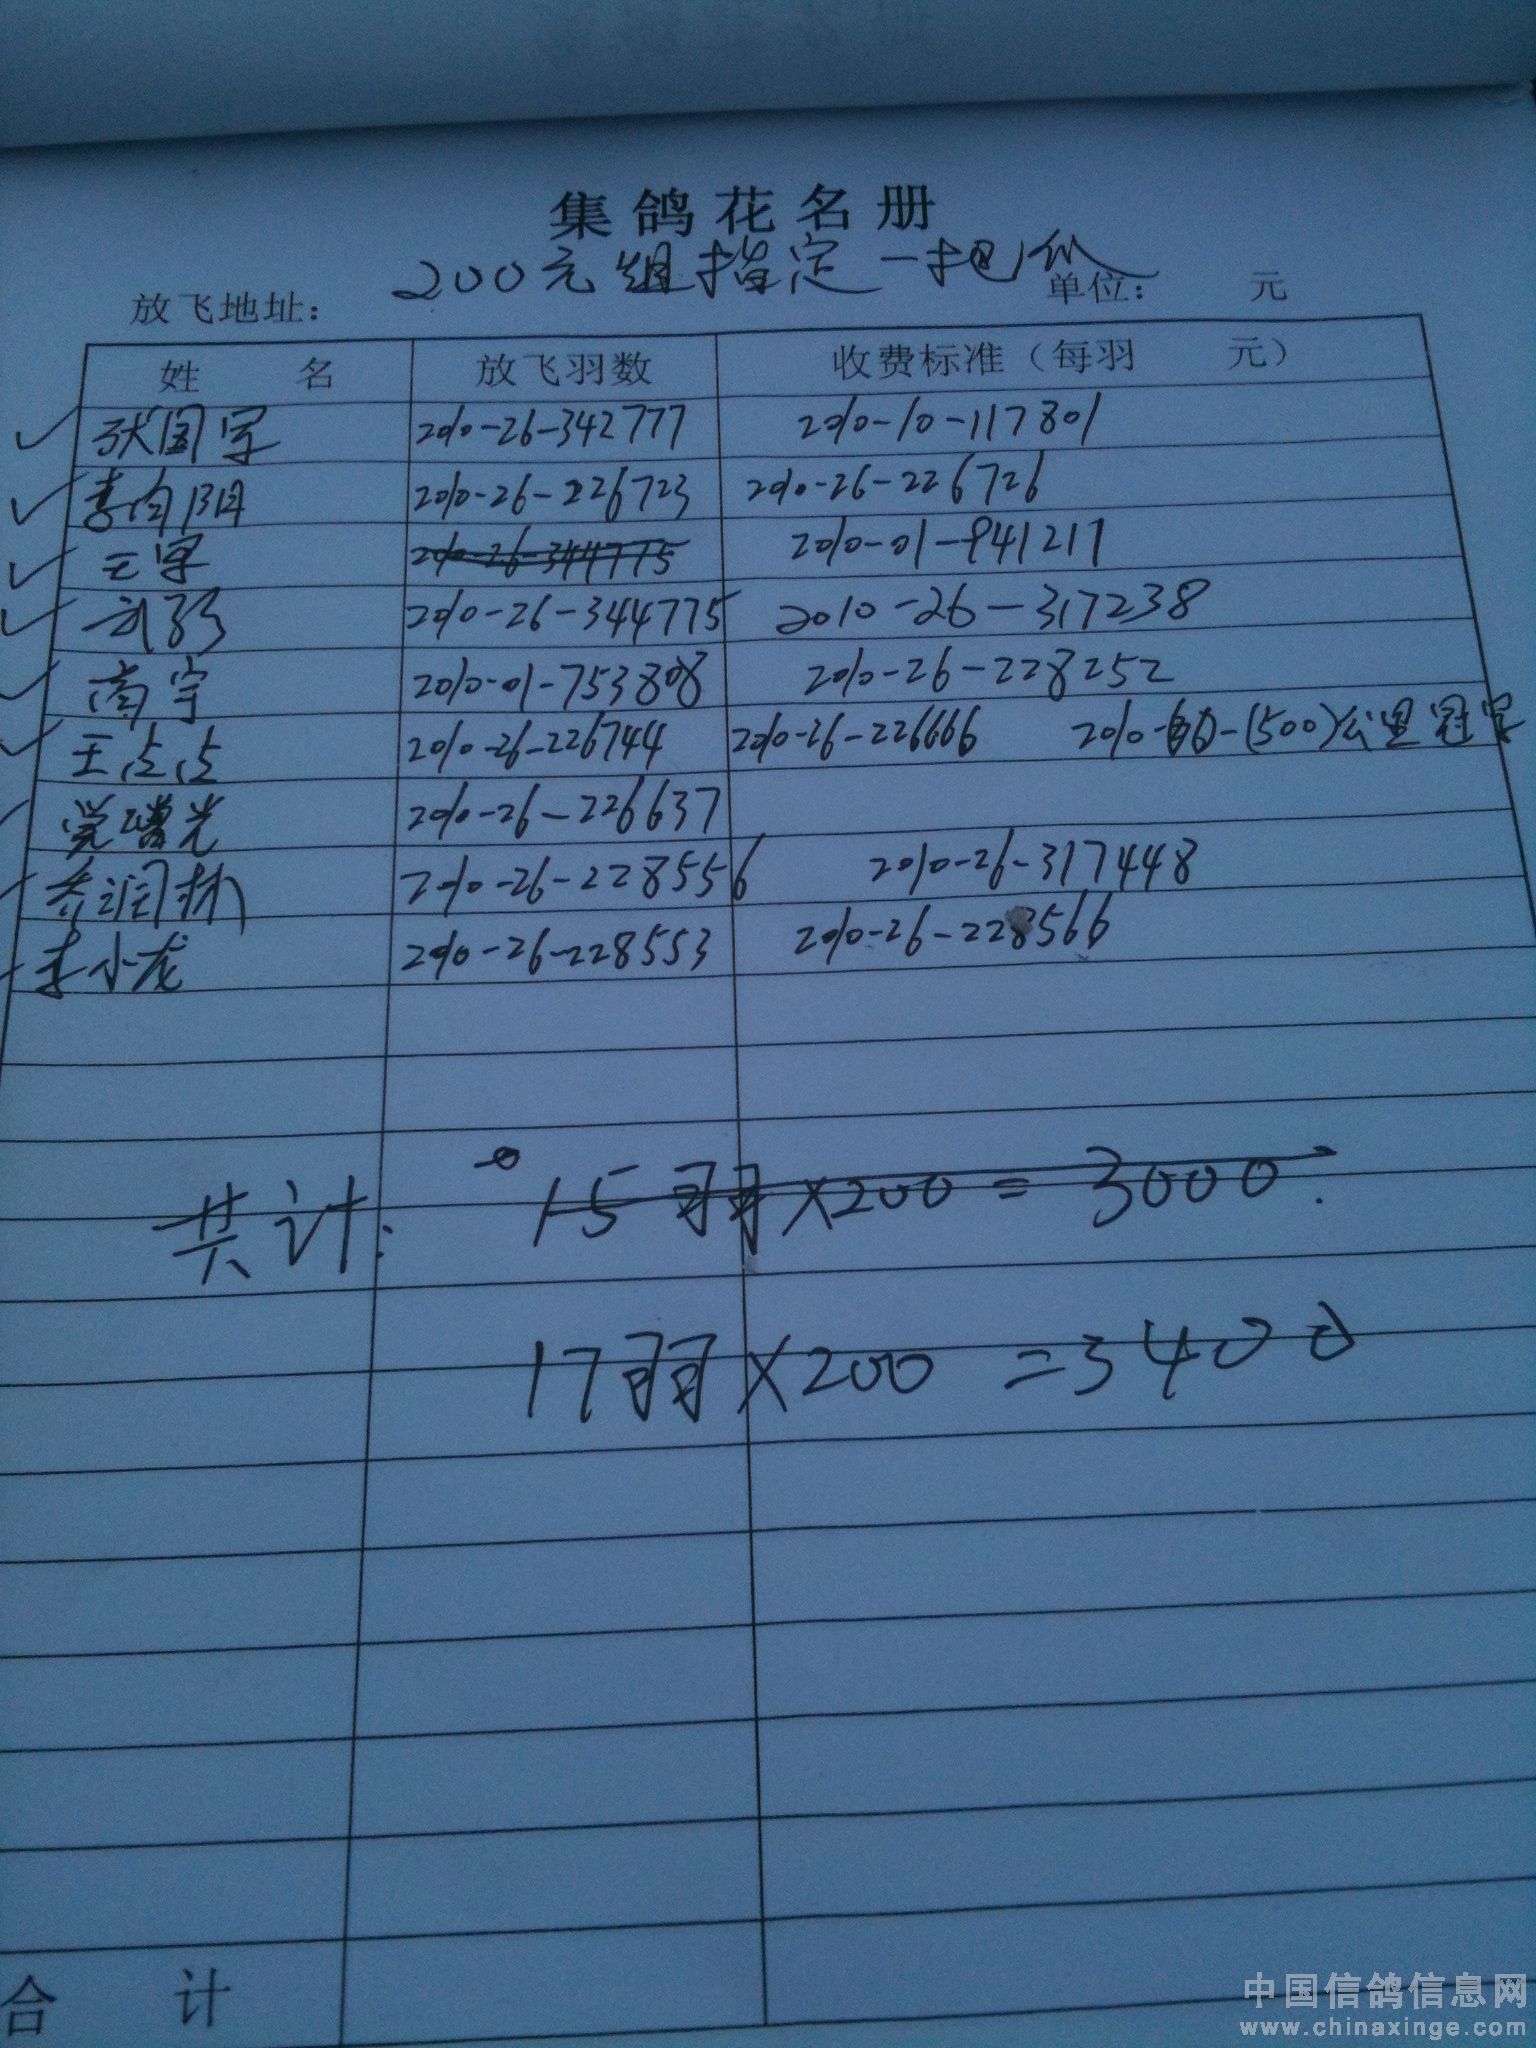 集鸽花名册
200元组指定一把抓
放飞地址： 单位： 元
姓 名 放飞羽数 收费标准（每羽 元）
张国宇 2010-26-342777 2010-10-117801
李向阳 2010-26-226723 2010-26-226726
王宇 2010-26-344775 2010-01-941211
2010-26-344775 2010-26-317238
南宇 2010-01-753808 2010-26-228252
王点点 2010-26-226744 2010-26-226666 2010- -(500)公里冠军
党曙光 2010-26-226637
李润林 2010-26-228556 2010-26-317448
李小龙 2010-26-228553 2010-26-228566
共计： 15羽×200=3000.
17羽×200=3400
合 计
中国信鸽信息网
www.chinaxinge.com